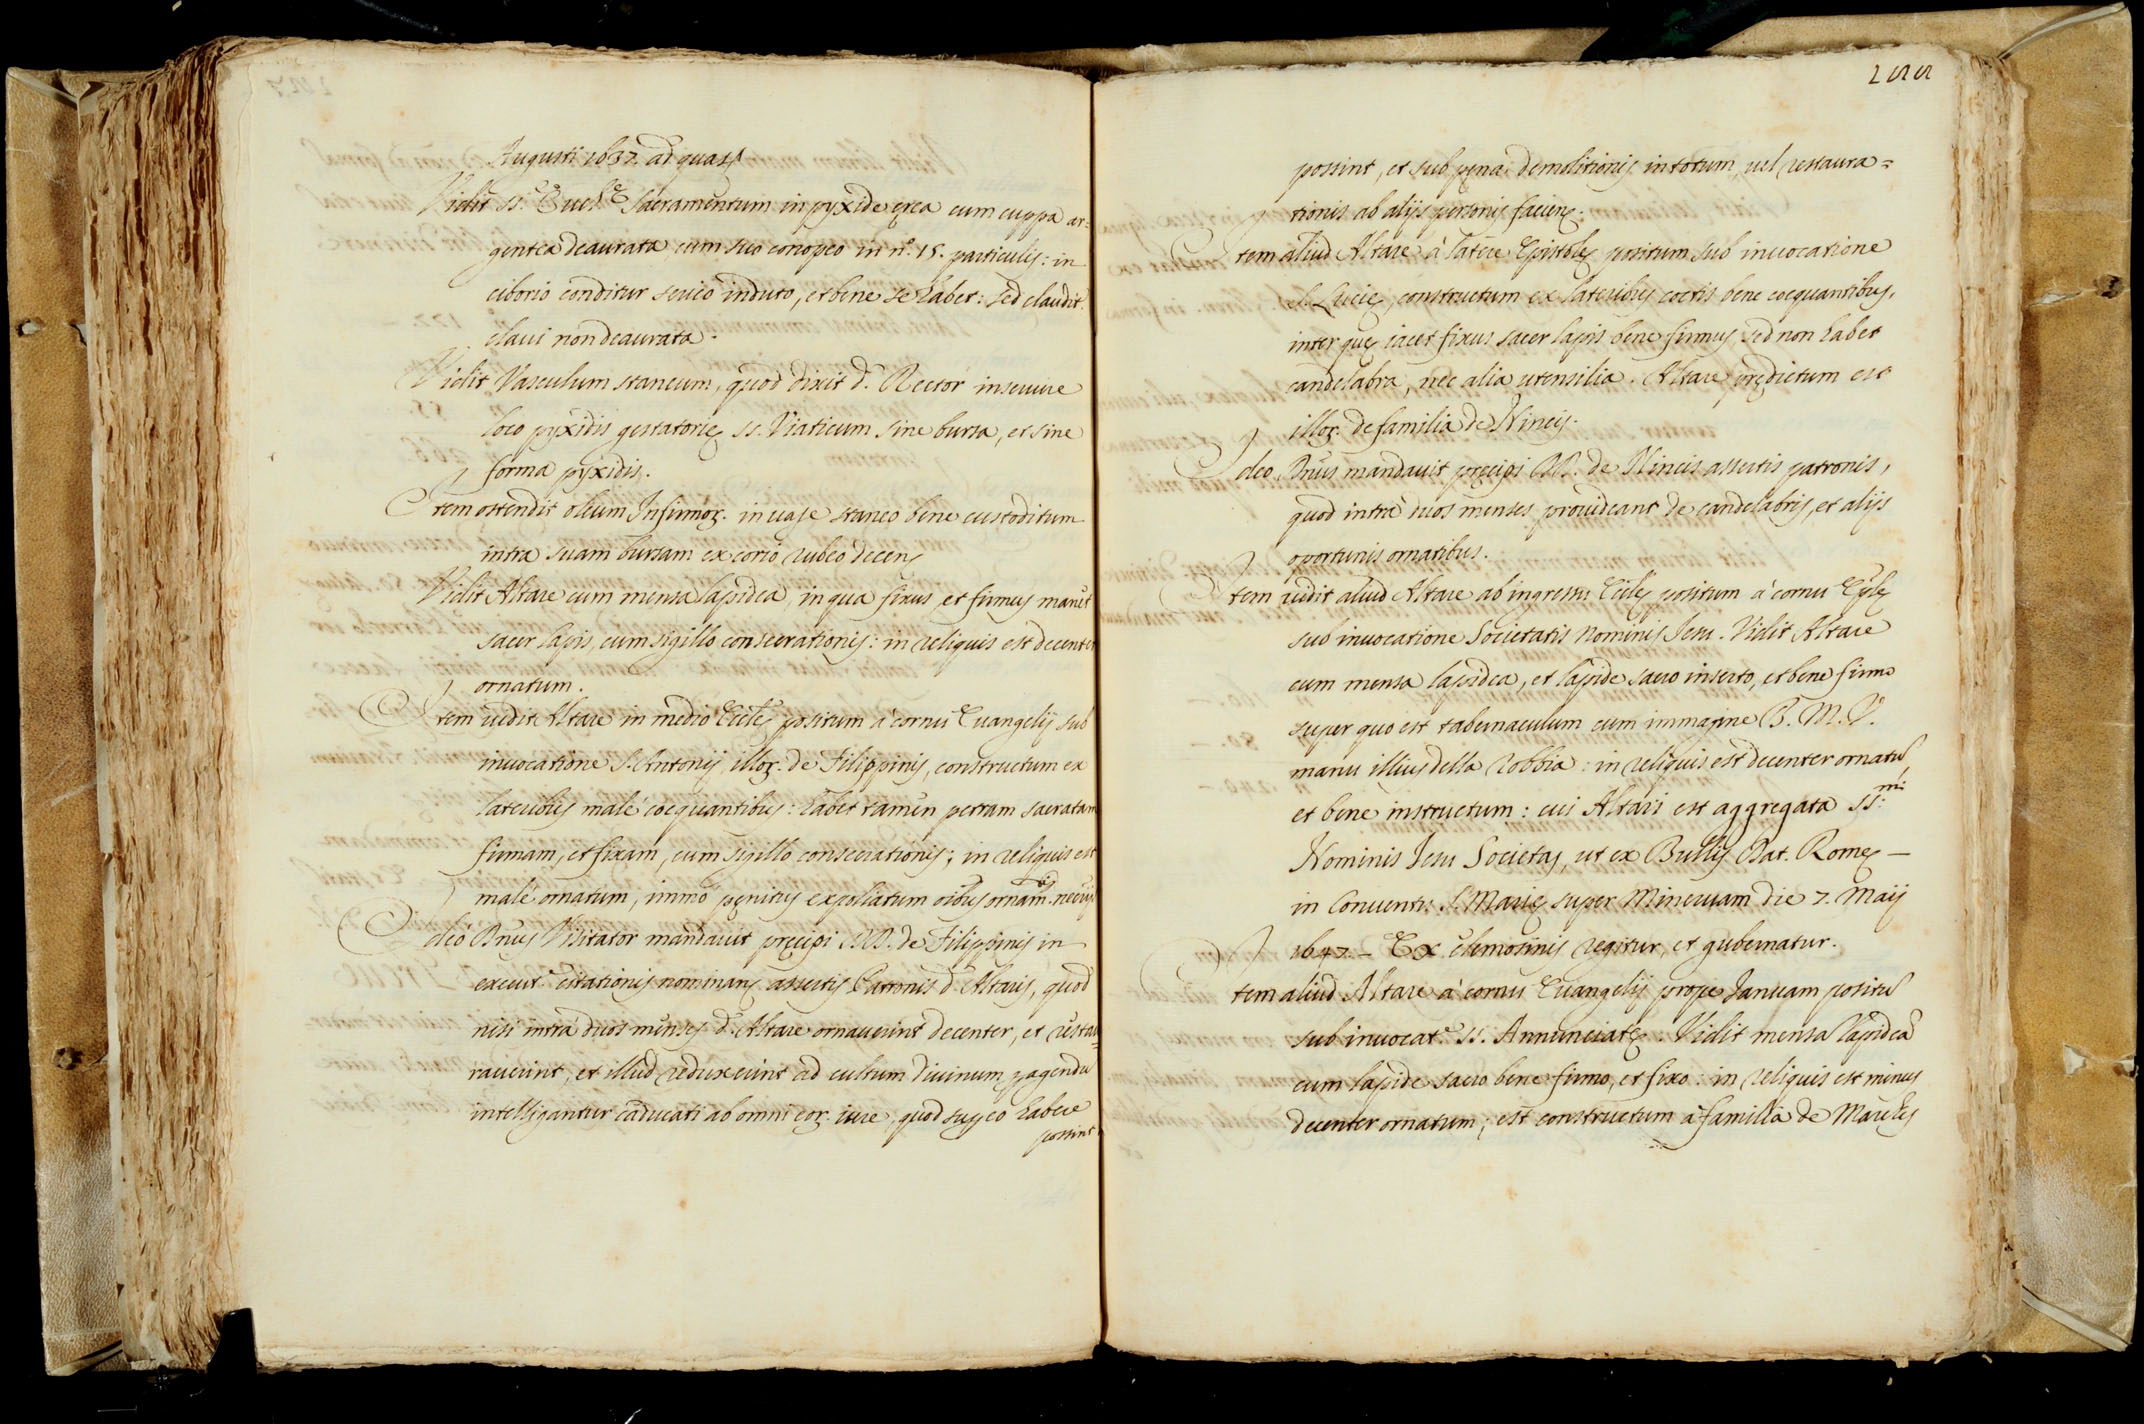 Augusti 1637. ad quas
Vidit SS. Euch.ę Sacramentum in pyxide ęrea cum cuppa ar-
gentea deaurata cum suo conopeo in n.o 15. particulis: in
ciborio conditur serico induto, et bene se habet: sed claudit.
claui non deaurata.
Vidit Vasculum staneum, quod dixit d. Rector inseruire
loco pyxidis gestatorię ss. Viaticum sine bursa, et sine
forma pyxidis.
Item ostendit oleum Infirmoꝝ. in uase staneo bene custoditum
intra suam bursam ex corio rubeo decen
Vidit Altare cum mensa lapidea, in qua fixus, et firmus manet
sacer lapis, cum sigillo consecrationis: in reliquis est decenter
ornatum.
Item uidit Altare in medio Eccle positum à cornu Euangelij sub
inuocatione S. Antonij illoꝝ. de Filippinis, constructum ex
lateribus malè coequantibus: habet tamen petram sacratam
firmam, et fixam, cum sigillo consecrationis; in reliquis est
malè ornatum, immò pęnitus expoliatum oibus ornam.bus necijs
Ideò Dnus Visitator mandauit pręcipi DD. de Filippinis in
execut.e citationis nominatis assertis Patronis d. Altaris, quod
nisi intrà duos menses d. Altare ornauerint decenter, et restau-
rauerint, et illud reduxerint ad cultum diuinum peragendu
intelligantur caducati ab omni eoꝝ. iure, quod supeo habere
possint
255
possint, et sub pęna demolitionis in totum, uel restaura=
tionis ab alijs personis facien.
Item aliud Altare à latere Epistolę positum sub inuocatione
S. Lucię, constructum ex lateribus coctis bene coequantibus,
inter quę iacet fixus sacer lapis bene firmus sed non habet
candelabra, nec alia utensilia. Altare prędictum est
illoꝝ. de familia de Nincis.
Ideo Dnus mandauit pręcipi DD. de Nincis assertis patronis,
quod intrà duos menses prouideant de candelabris, et alijs
oportunis ornatibus.
Item uidit aliud Altare ab ingressu Ecclę positum à cornu Eplę
sub inuocatione Societatis Nominis Iesu. Vidit Altare
cum mensa lapidea, et lapide sacro inserto, et bene firmo
super quo est tabernaculum cum immagine B. M. V.
manu illius della robbia: in reliquis est decenter ornatu
et bene instructum: cui Altari est aggregata SS.mi
Nominis Iesu Societas, ut ex Bullis Dat. Romę —
in Conuentu S. Marię super Mineruam die 7. Maij
1647. — Ex elemosinis regitur, et gubernatur.
Item aliud Altare à cornu Euangelij prope Ianuam positu
sub inuocat.e SS. Annunciatę. Vidit mensa lapidea
cum lapide sacro bene firmo, et fixo: in reliquis est minus
decenter ornatum; est constructum à familia de